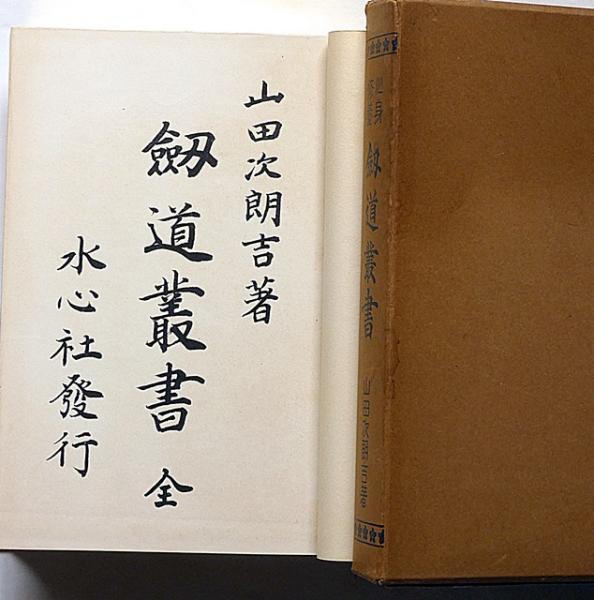 山田次朗吉著
劔道叢書 全
水心社發行
心身修養
劔道叢書
山田次朗吉著